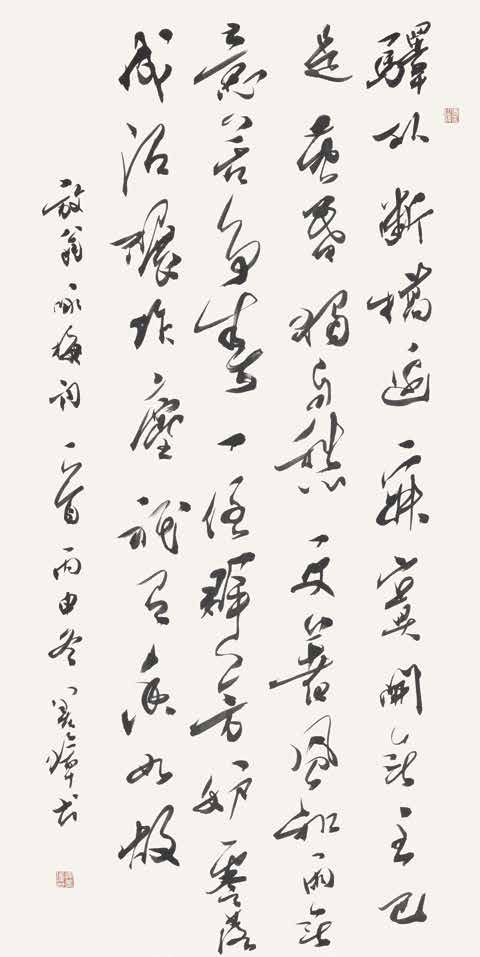 驛外斷橋邊寂寞開無主已
是黃昏獨自愁更著風和雨無
意苦争春一任群芳妒零落
成泥碾作塵祇有香如故
放翁咏梅詞一首丙申冬書